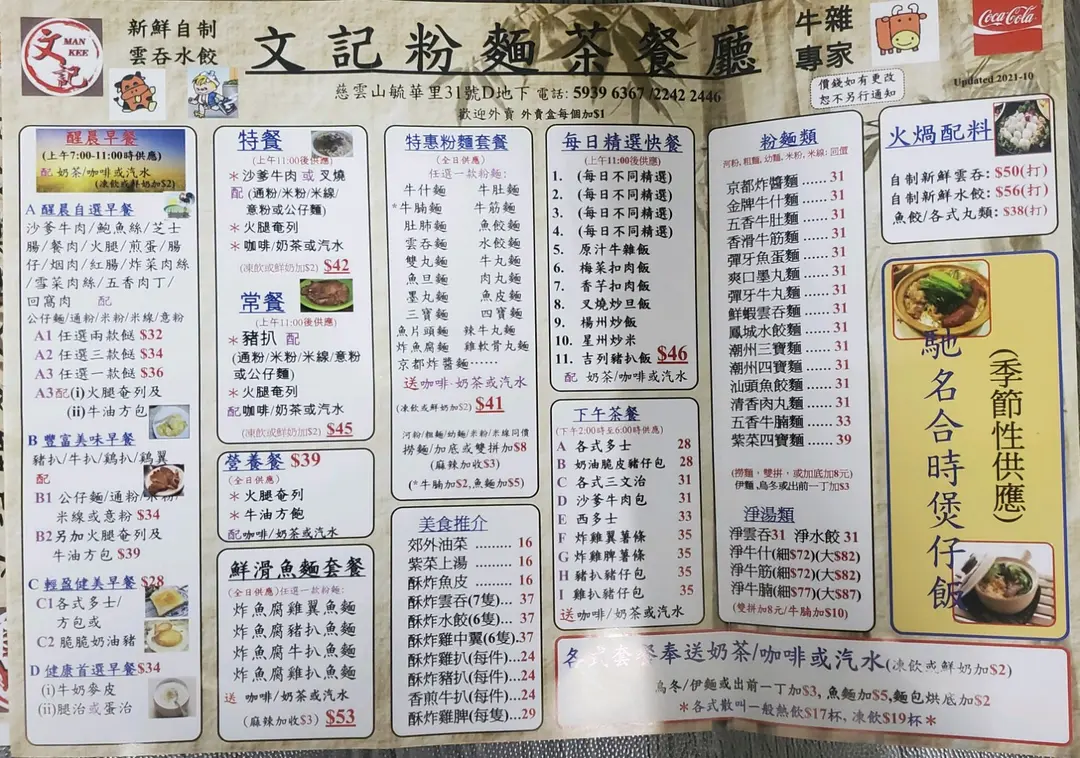 文記
MAN
KEE
新鮮自制
雲吞水餃
文記粉麵茶餐廳
慈雲山毓華里31號D地下 電話: 5939 6367 /2242 2446
歡迎外賣 外賣盒每個加$1
牛雜
專家
價錢如有更改
恕不另行通知
Coca-Cola
Updated 2021-10
醒晨早餐
(上午7:00-11:00時供應)
配 奶茶/咖啡或汽水
(凍飲或鮮奶加$2)
A 醒晨自選早餐
沙爹牛肉/鮑魚絲/芝士
腸/餐肉/火腿/煎蛋/腸
仔/烟肉/紅腸/炸菜肉絲
/雪菜肉絲/五香肉丁/
回窩肉 配
公仔麵/通粉/米粉/米線/意粉
A1 任選兩款餸 $32
A2 任選三款餸 $34
A3 任選一款餸 $36
A3配(i)火腿奄列及
(ii)牛油方包
B 豐富美味早餐
豬扒/牛扒/鷄扒/鷄翼
配
B1 公仔麵/通粉/米粉/
米線或意粉 $34
B2 另加火腿奄列及
牛油方包 $39
C 輕盈健美早餐 $28
C1各式多士/
方包或
C2 脆脆奶油豬
D 健康首選早餐$34
(i)牛奶麥皮
(ii)腿治或蛋治
特餐
(上午11:00後供應)
*沙爹牛肉 或 叉燒
配 (通粉/米粉/米線/
意粉或公仔麵)
*火腿奄列
*咖啡/奶茶或汽水
(凍飲或鮮奶加$2) $42
常餐
(上午11:00後供應)
*豬扒 配
(通粉/米粉/米線/意粉
或公仔麵)
*火腿奄列
配咖啡/奶茶或汽水
(凍飲或鮮奶加$2) $45
營養餐 $39
(全日供應)
*火腿奄列
*牛油方飽
配咖啡/奶茶或汽水
鮮滑魚麵套餐
(全日供應)任選一款粉麵:
炸魚腐雞翼魚麵
炸魚腐豬扒魚麵
炸魚腐牛扒魚麵
炸魚腐雞扒魚麵
送 咖啡/奶茶或汽水
(麻辣加收$3) $53
特惠粉麵套餐
(全日供應)
任選一款粉麵:
牛什麵 牛肚麵
*牛腩麵 牛筋麵
肚肺麵 魚餃麵
雲吞麵 水餃麵
雙丸麵 牛丸麵
魚旦麵 肉丸麵
墨丸麵 魚皮麵
三寶麵 四寶麵
魚片頭麵 辣牛丸麵
炸魚腐麵 雞軟骨丸麵
京都炸醬麵……
送咖啡、奶茶或汽水
(凍飲或鮮奶加$2) $41
河粉/粗麵/幼麵/米粉/米線同價
撈麵/加底或雙拼加$8
(麻辣加收$3)
(*牛腩加$2,魚麵加$5)
美食推介
郊外油菜 ......... 16
紫菜上湯 ......... 16
酥炸魚皮 ......... 16
酥炸雲吞(7隻)... 37
酥炸水餃(6隻)... 37
酥炸雞中翼(6隻).37
酥炸雞扒(每件)...24
酥炸豬扒(每件)...24
香煎牛扒(每件)...24
酥炸雞脾(每隻)...29
每日精選快餐
(上午11:00後供應)
1. (每日不同精選)
2. (每日不同精選)
3. (每日不同精選)
4. (每日不同精選)
5. 原汁牛雜飯
6. 梅菜扣肉飯
7. 香芋扣肉飯
8. 叉燒炒旦飯
9. 楊州炒飯
10. 星州炒米
11. 吉列豬扒飯 $46
配 奶茶/咖啡或汽水
下午茶餐
(下午2:00時至6:00時供應)
A 各式多士 28
B 奶油脆皮豬仔包 28
C 各式三文治 31
D 沙爹牛肉包 31
E 西多士 33
F 炸雞翼薯條 35
G 炸雞脾薯條 35
H 豬扒豬仔包 35
I 雞扒豬仔包 35
送 咖啡/奶茶或汽水
粉麵類
河粉,粗麵,幼麵,米粉,米線: 回價
京都炸醬麵 ...... 31
金牌牛什麵 ...... 31
五香牛肚麵 ...... 31
香滑牛筋麵 ...... 31
彈牙魚蛋麵 ...... 31
爽口墨丸麵 ...... 31
彈牙牛丸麵 ...... 31
鮮蝦雲吞麵 ...... 31
鳳城水餃麵 ...... 31
潮州三寶麵 ...... 31
潮州四寶麵 ...... 31
汕頭魚餃麵 ...... 31
清香肉丸麵 ...... 31
五香牛腩麵 ...... 33
紫菜四寶麵 ...... 39
(撈麵,雙拼,或加底加8元)
伊麵,烏冬或出前一丁加$3
淨湯類
淨雲吞31 淨水餃 31
淨牛什(細$72)(大$82)
淨牛筋(細$72)(大$82)
淨牛腩(細$77)(大$87)
(雙拼加8元/牛腩加$10)
火煱配料
自制新鮮雲吞: $50(打)
自制新鮮水餃: $56(打)
魚餃/各式丸類: $38(打)
馳名合時煲仔飯
(季節性供應)
各式套餐奉送奶茶/咖啡或汽水(凍飲或鮮奶加$2)
烏冬/伊麵或出前一丁加$3, 魚麵加$5, 麵包烘底加$2
*各式散叫一般熱飲$17杯, 凍飲$19杯*